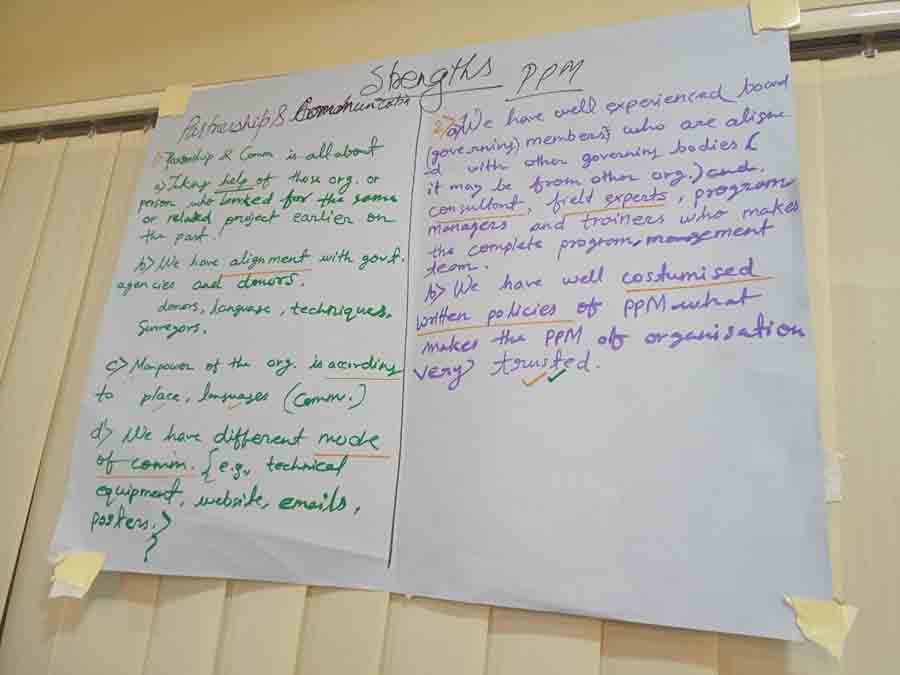 Strengths
Partnership & Communication
1) Partnership & Comm is all about
a) Taking help of those org. or
person who worked for the same
or related project earlier on
the past.
b) We have alignment with govt.
agencies and donors.
donors, language, techniques,
Surveyors.
c) Manpower of the org. is acording
to place, languages (Comm.)
d) We have different mode
of comm. {e.g., technical
equipment, website, emails,
posters.}
}
PPM
2) a) We have well experienced board
(governing) members, who are aligne
d with other governing bodies (
it may be from other org.) and
consultant, field experts, program
managers and trainers who makes
the complete program management
team.
b) We have well costumised
written policies of PPM what
makes the PPM of organisation
very trusted.